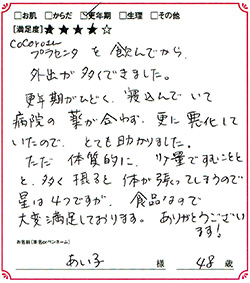 □お肌 □からだ ☑更年期 □生理 □その他
[満足度] ★★★★☆
CoCorosu
プラセンタ を 飲んでから、
外出が 多くできました。
更年期がひどく、寝込んで いて
病院の 薬が 合わず、更に 悪化して
いたので、とても 助かりました。
ただ 体質的に、少量ですむことと
と、多く 摂ると 体が 張ってしまうので
星は 4つですが、食品なので
大変 満足しております。ありがとうござい
ます!
お名前(本名orペンネーム)
あい子 様 48 歳